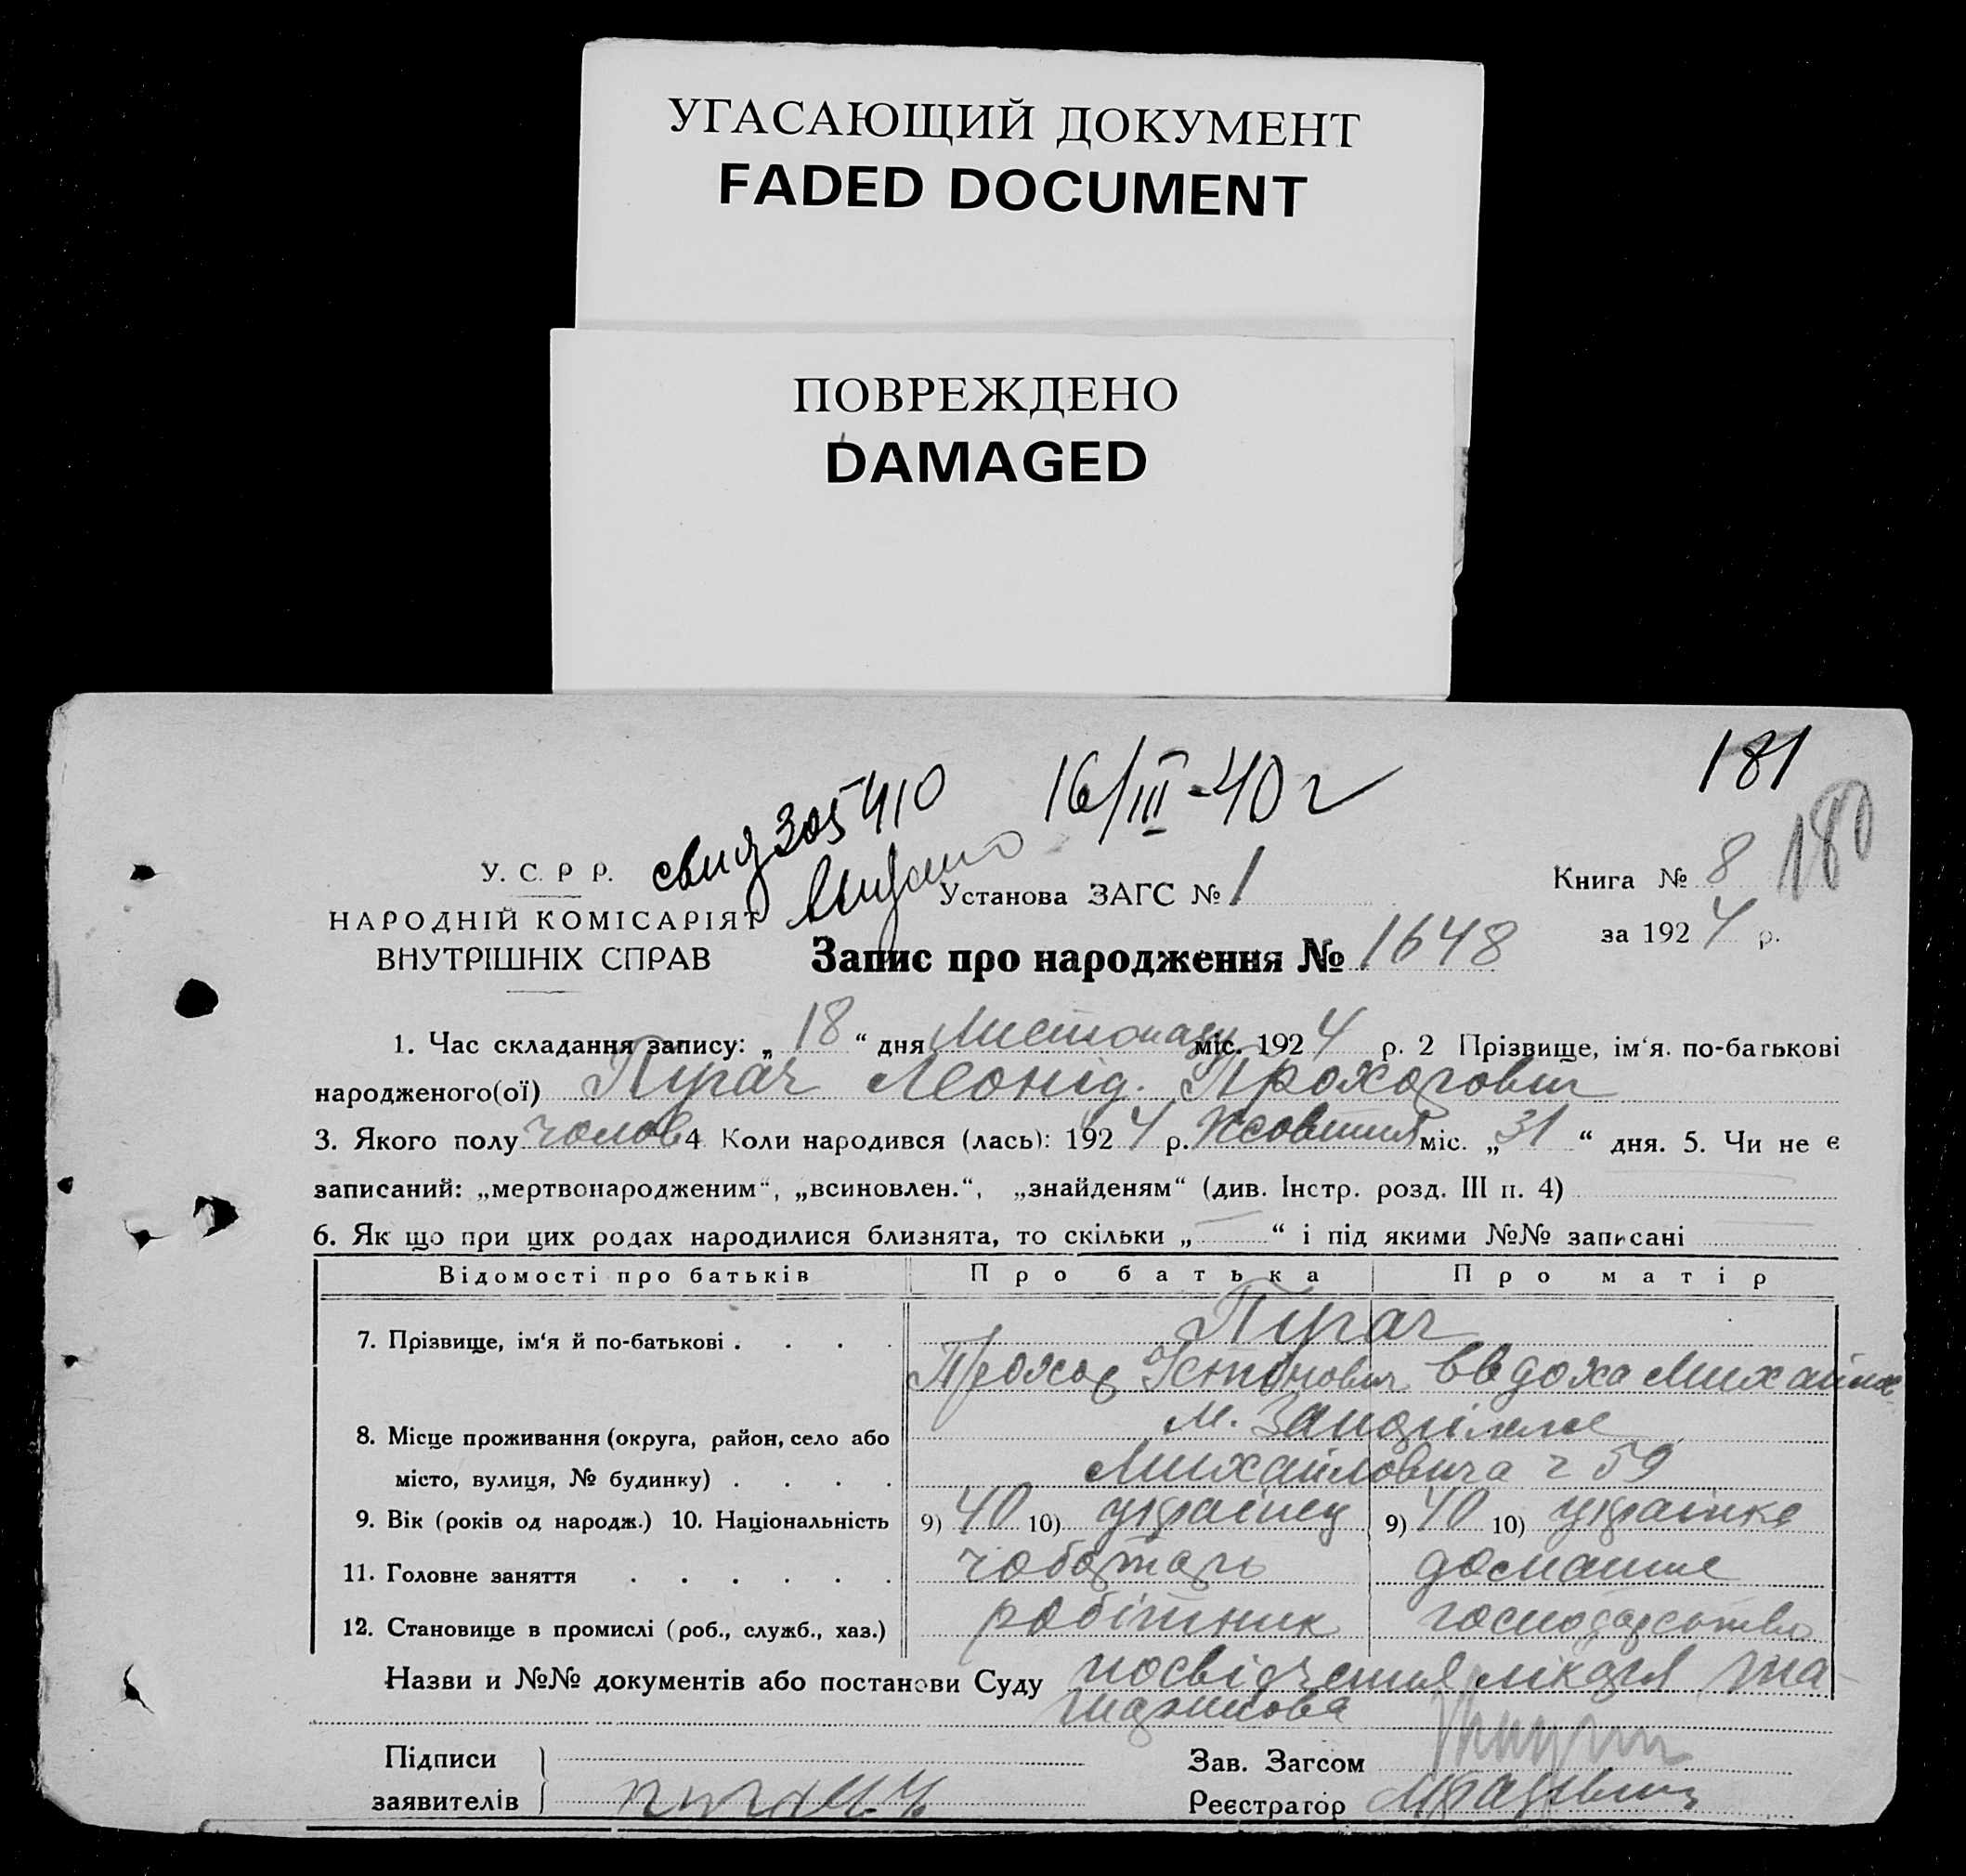 УГАСАЮЩИЙ ДОКУМЕНТ
FADED DOCUMENT
ПОВРЕЖДЕНО
DAMAGED
181
180
16/III-40 г
свид 305410
У. С. Р Р.
НАРОДНІЙ КОМІСАРІЯТ
ВНУТРІШНІХ СПРАВ
Установа ЗАГС № 1
Книга № 8
за 1924 р.
Запис про народження № 1648
1. Час складання запису: „ 18 “ дня Листопаду міс. 1924 р. 2 Прізвище, ім‘я. по-батькові
народженого(ої) Пугач Леонід. Прохорович
3. Якого полу чолов 4 Коли народився (лась): 1924 р. Жовтня міс. „ 31 “ дня. 5. Чи не є
записаний: „мертвонародженим“, „всиновлен.“, „знайденям“ (див. Інстр. розд. III п. 4)
6. Як що при цих родах народилися близнята, то скільки „ — “ і під якими №№ записані
Відомості про батьків Про батька Про матір
7. Прізвище, ім‘я й по-батькові . . . . Пугач
Прохор Устинович Явдоха Михайл
8. Місце проживання (округа, район, село або м.
місто, вулиця, № будинку) . . . . Михайловича 59
9. Вік (років од народж.) 10. Національність 9) 40 10) українец 9) 40 10) українка
11. Головне заняття . . . . . . чоботарь домашне
12. Становище в промислі (роб., служб., хаз.) робітник господарство
Назви и №№ документів або постанови Суду посвідчення лікаря та
Підписи
заявителів
Зав. Загсом
Реєстратор